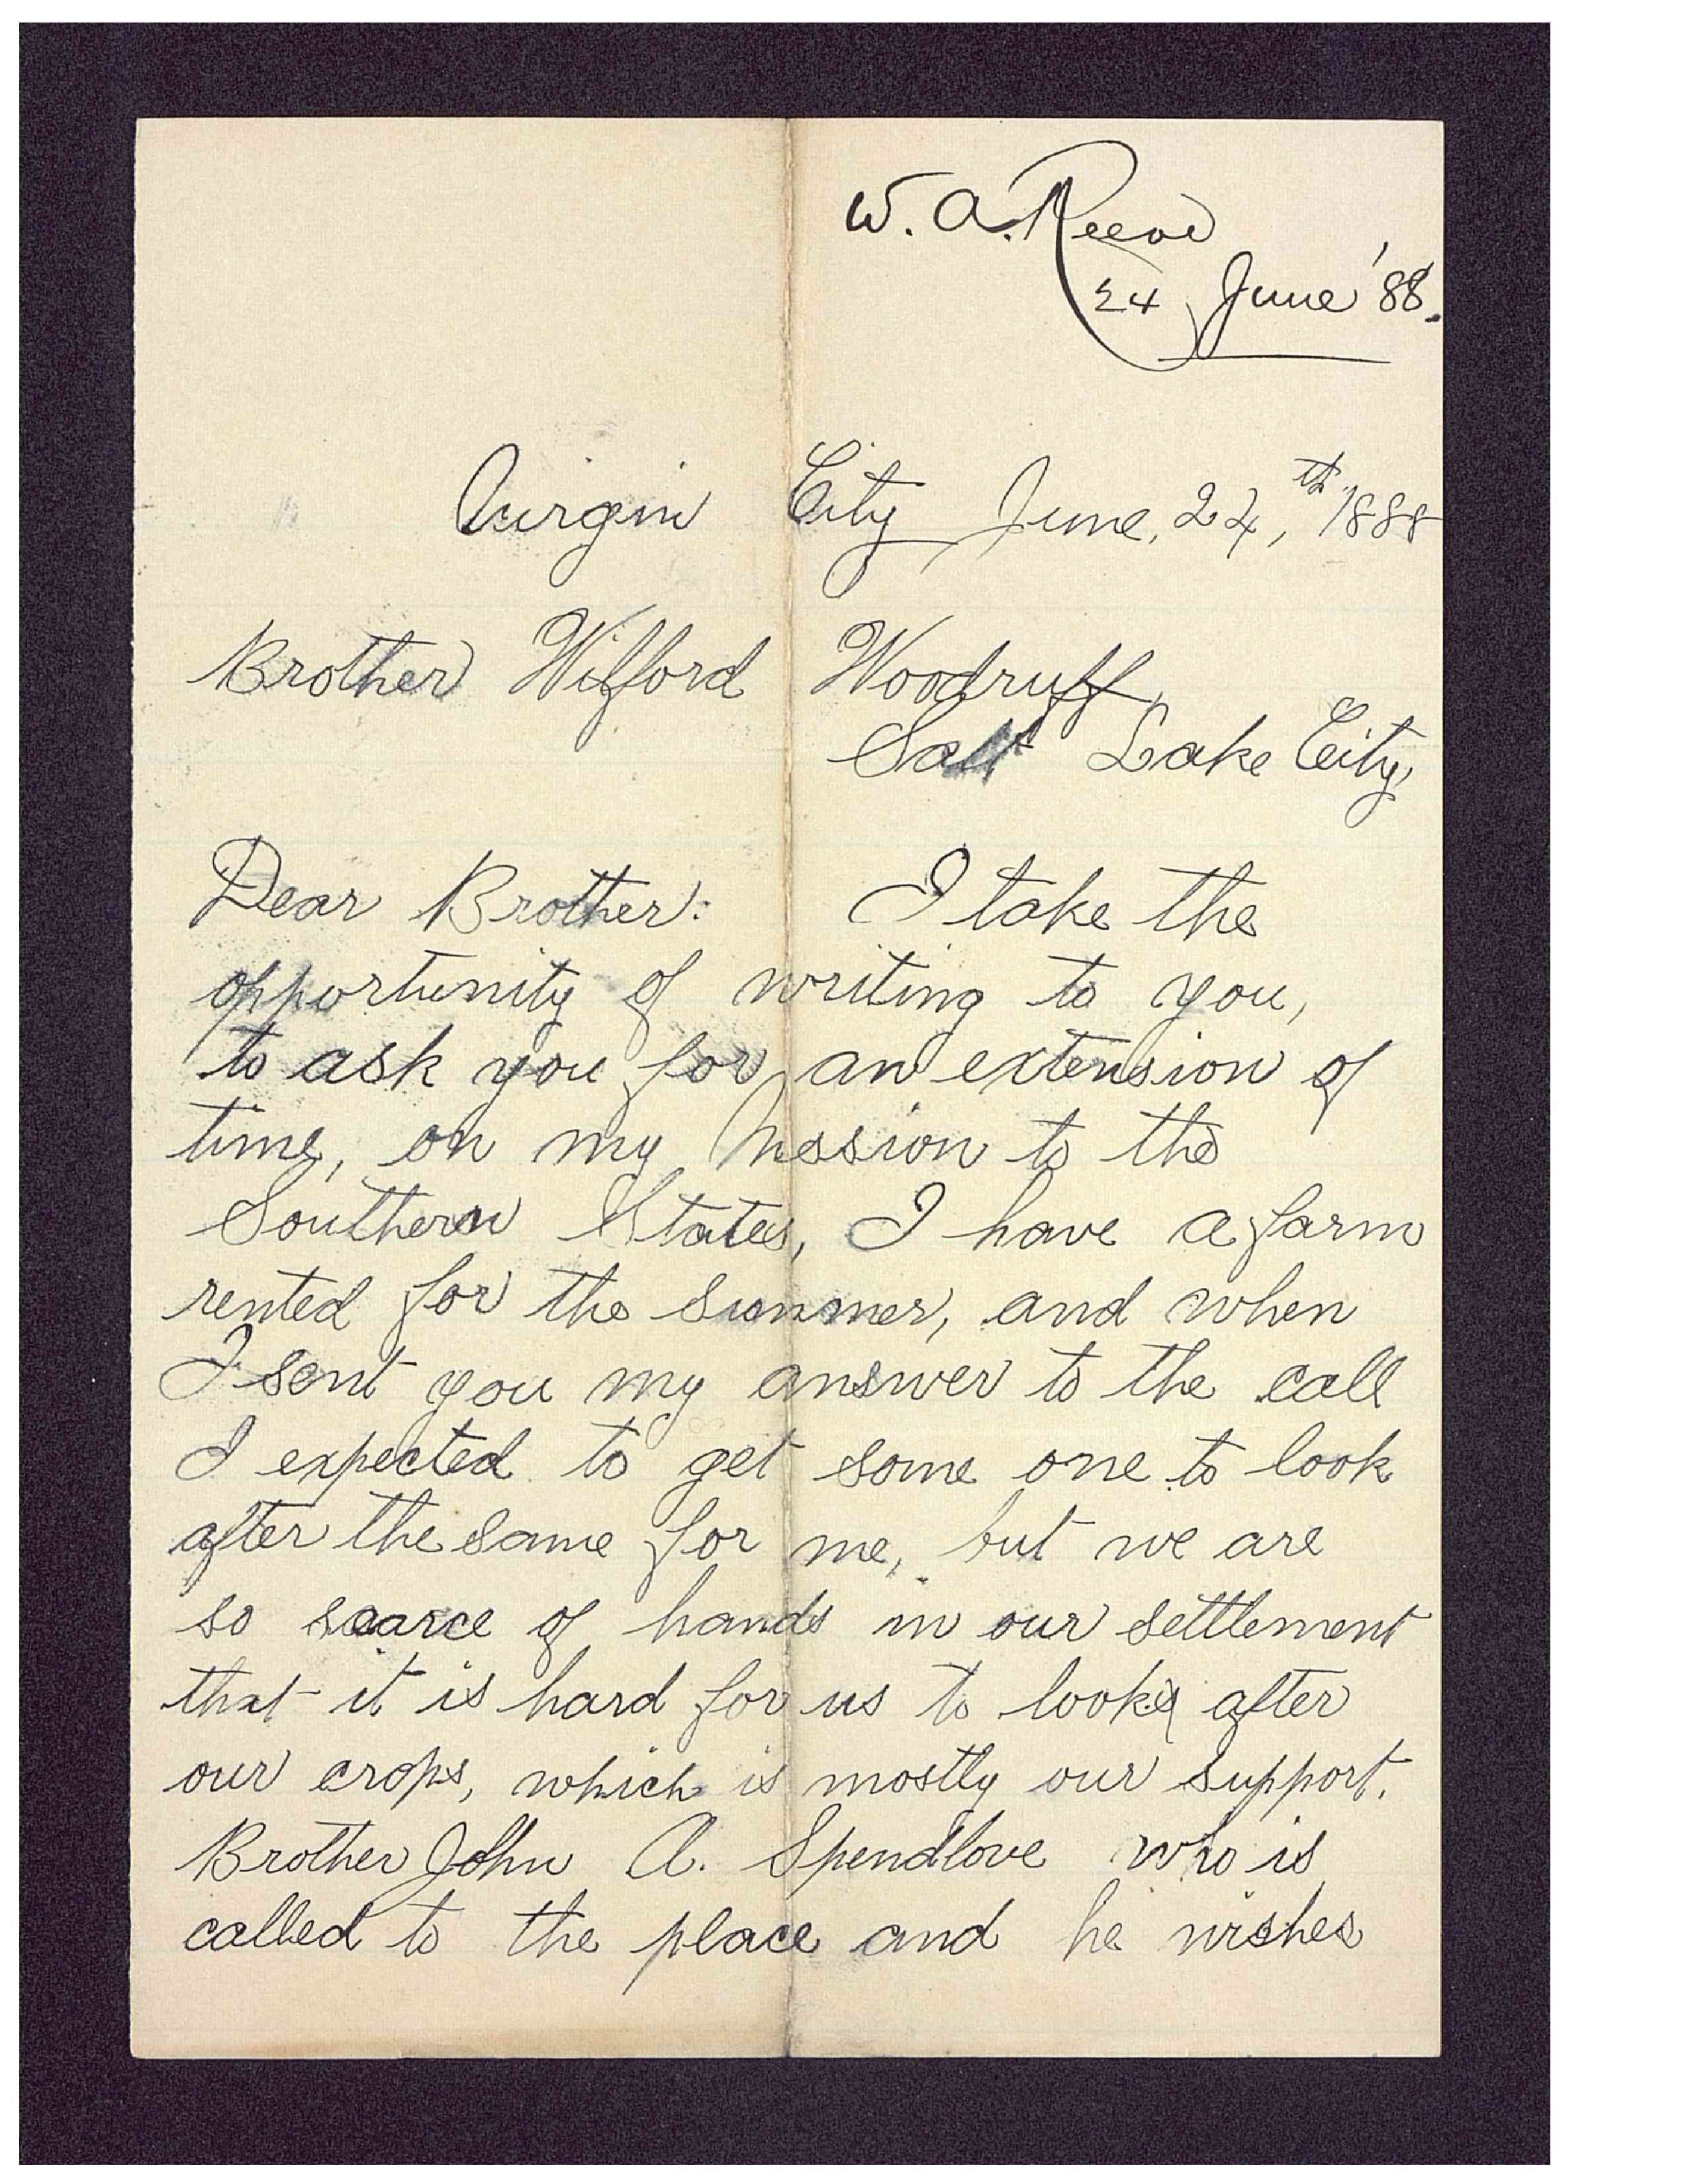 W. A. Reeve
24 June '88.
Virgin City June, 24,th 1888
Brother Wilford Woodruff,
Salt Lake City,
Dear Brother: I take the
opportunity of writing to you,
to ask you for an extension of
time, on my Mission to the
Southern States, I have a farm
rented for the summer, and when
I sent you my answer to the call
I expected to get some one to look
after the same for me, but we are
so scarce of hands in our settlement
that it is hard for us to look after
our crops, which is mostly our support.
Brother John A. Spendlove who is
called to the place and he wishes